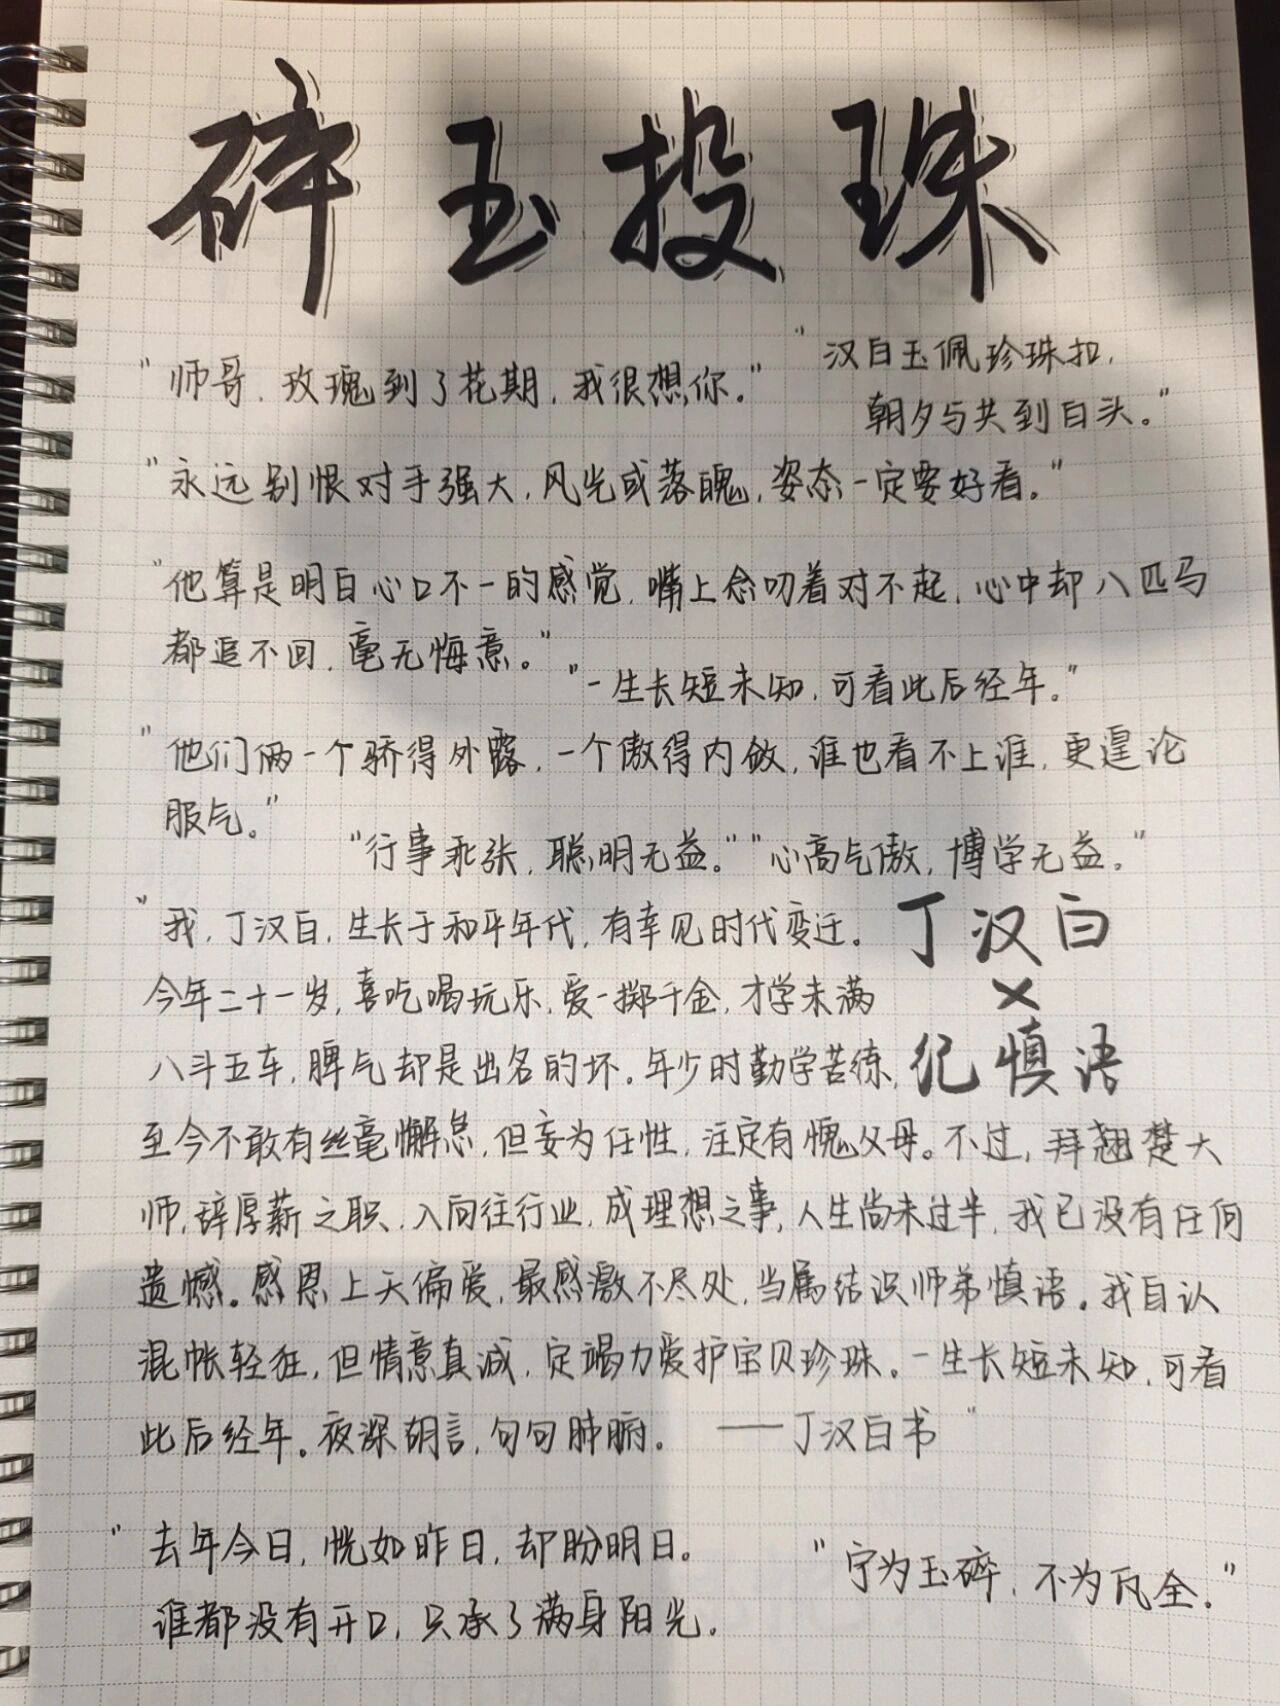 碎玉投珠
"师哥,玫瑰到了花期,我很想你。"
"汉白玉佩珍珠扣,
朝夕与共到白头。"
"永远别恨对手强大,风光或落魄,姿态一定要好看。"
"他算是明白心口不一的感觉,嘴上念叨着对不起,心中却八匹马
都追不回,毫无悔意。"
"一生长短未知,可看此后经年。"
"他们俩一个骄得外露,一个傲得内敛,谁也看不上谁,更遑论
服气。"
"行事乖张,聪明无益。""心高气傲,博学无益。"
"我,丁汉白,生长于和平年代,有幸见时代变迁。
今年二十一岁,喜吃喝玩乐,爱一掷千金,才学未满
八斗五车,脾气却是出名的坏。年少时勤学苦练,
丁汉白
×
纪慎语
至今不敢有丝毫懈怠,但妄为任性,注定有愧父母。不过,拜翘楚大
师,辞厚薪之职、入向往行业,成理想之事,人生尚未过半,我已没有任何
遗憾。感恩上天偏爱,最感激不尽处,当属结识师弟慎语。我自认
混帐轻狂,但情意真诚,定竭力爱护宝贝珍珠。一生长短未知,可看
此后经年。夜深胡言,句句肺腑。 ——丁汉白书"
"去年今日,恍如昨日,却盼明日。
谁都没有开口,只承了满身阳光。
"宁为玉碎,不为瓦全."